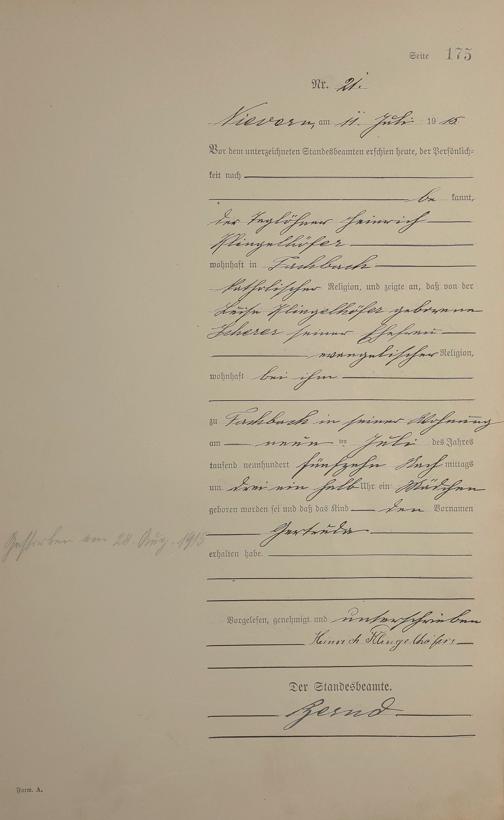 Seite 175
Nr. 21.
Nievern, am 11. Juli 1915
Vor dem unterzeichneten Standesbeamten erschien heute, der Persönlich-
keit nach
be kannt,
der Taglöhner Heinrich
Klingelhöfer
wohnhaft in Fachbach
katholischer Religion, und zeigte an, daß von der
Luise Klingelhöfer geborene
Scherer seiner Ehefrau
evangelischer Religion,
wohnhaft bei ihm
zu Fachbach in seiner Wohnung
am neun ten Juli des Jahres
tausend neunhundert fünfzehn Nach mittags
um drei ein halb Uhr ein Mädchen
geboren worden sei und daß das Kind den Vornamen
Gertruda
Gestorben am 28. Aug. 1915
erhalten habe.
Vorgelesen, genehmigt und unterschrieben
Heinrich Klingelhöfer
Der Standesbeamte.
Bernd
Form. A.